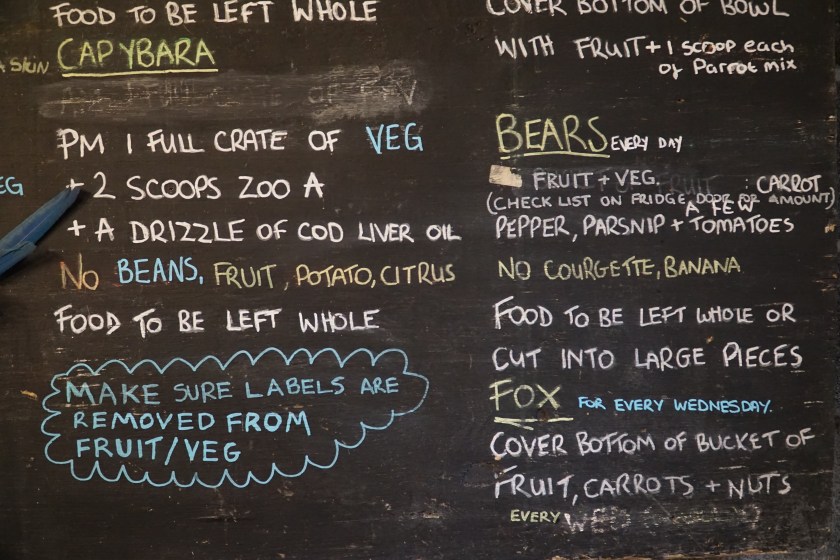 FOOD TO BE LEFT WHOLE
SKIN
CAPYBARA
PM 1 FULL CRATE OF VEG
EG
+ 2 SCOOPS ZOO A
+ A DRIZZLE OF COD LIVER OIL
NO BEANS, FRUIT, POTATO, CITRUS
FOOD TO BE LEFT WHOLE
MAKE SURE LABELS ARE
REMOVED FROM
FRUIT/VEG
COVER BOTTOM OF BOWL
WITH FRUIT + 1 SCOOP each
of Parrot mix
BEARS EVERY DAY
FRUIT + VEG. : CARROT,
(CHECK LIST ON FRIDGE DOOR FOR AMOUNT)
A FEW
PEPPER, PARSNIP + TOMATOES
NO COURGETTE, BANANA
FOOD TO BE LEFT WHOLE OR
CUT INTO LARGE PIECES
FOX FOR EVERY WEDNESDAY.
COVER BOTTOM OF BUCKET OF
FRUIT, CARROTS + NUTS
EVERY WED